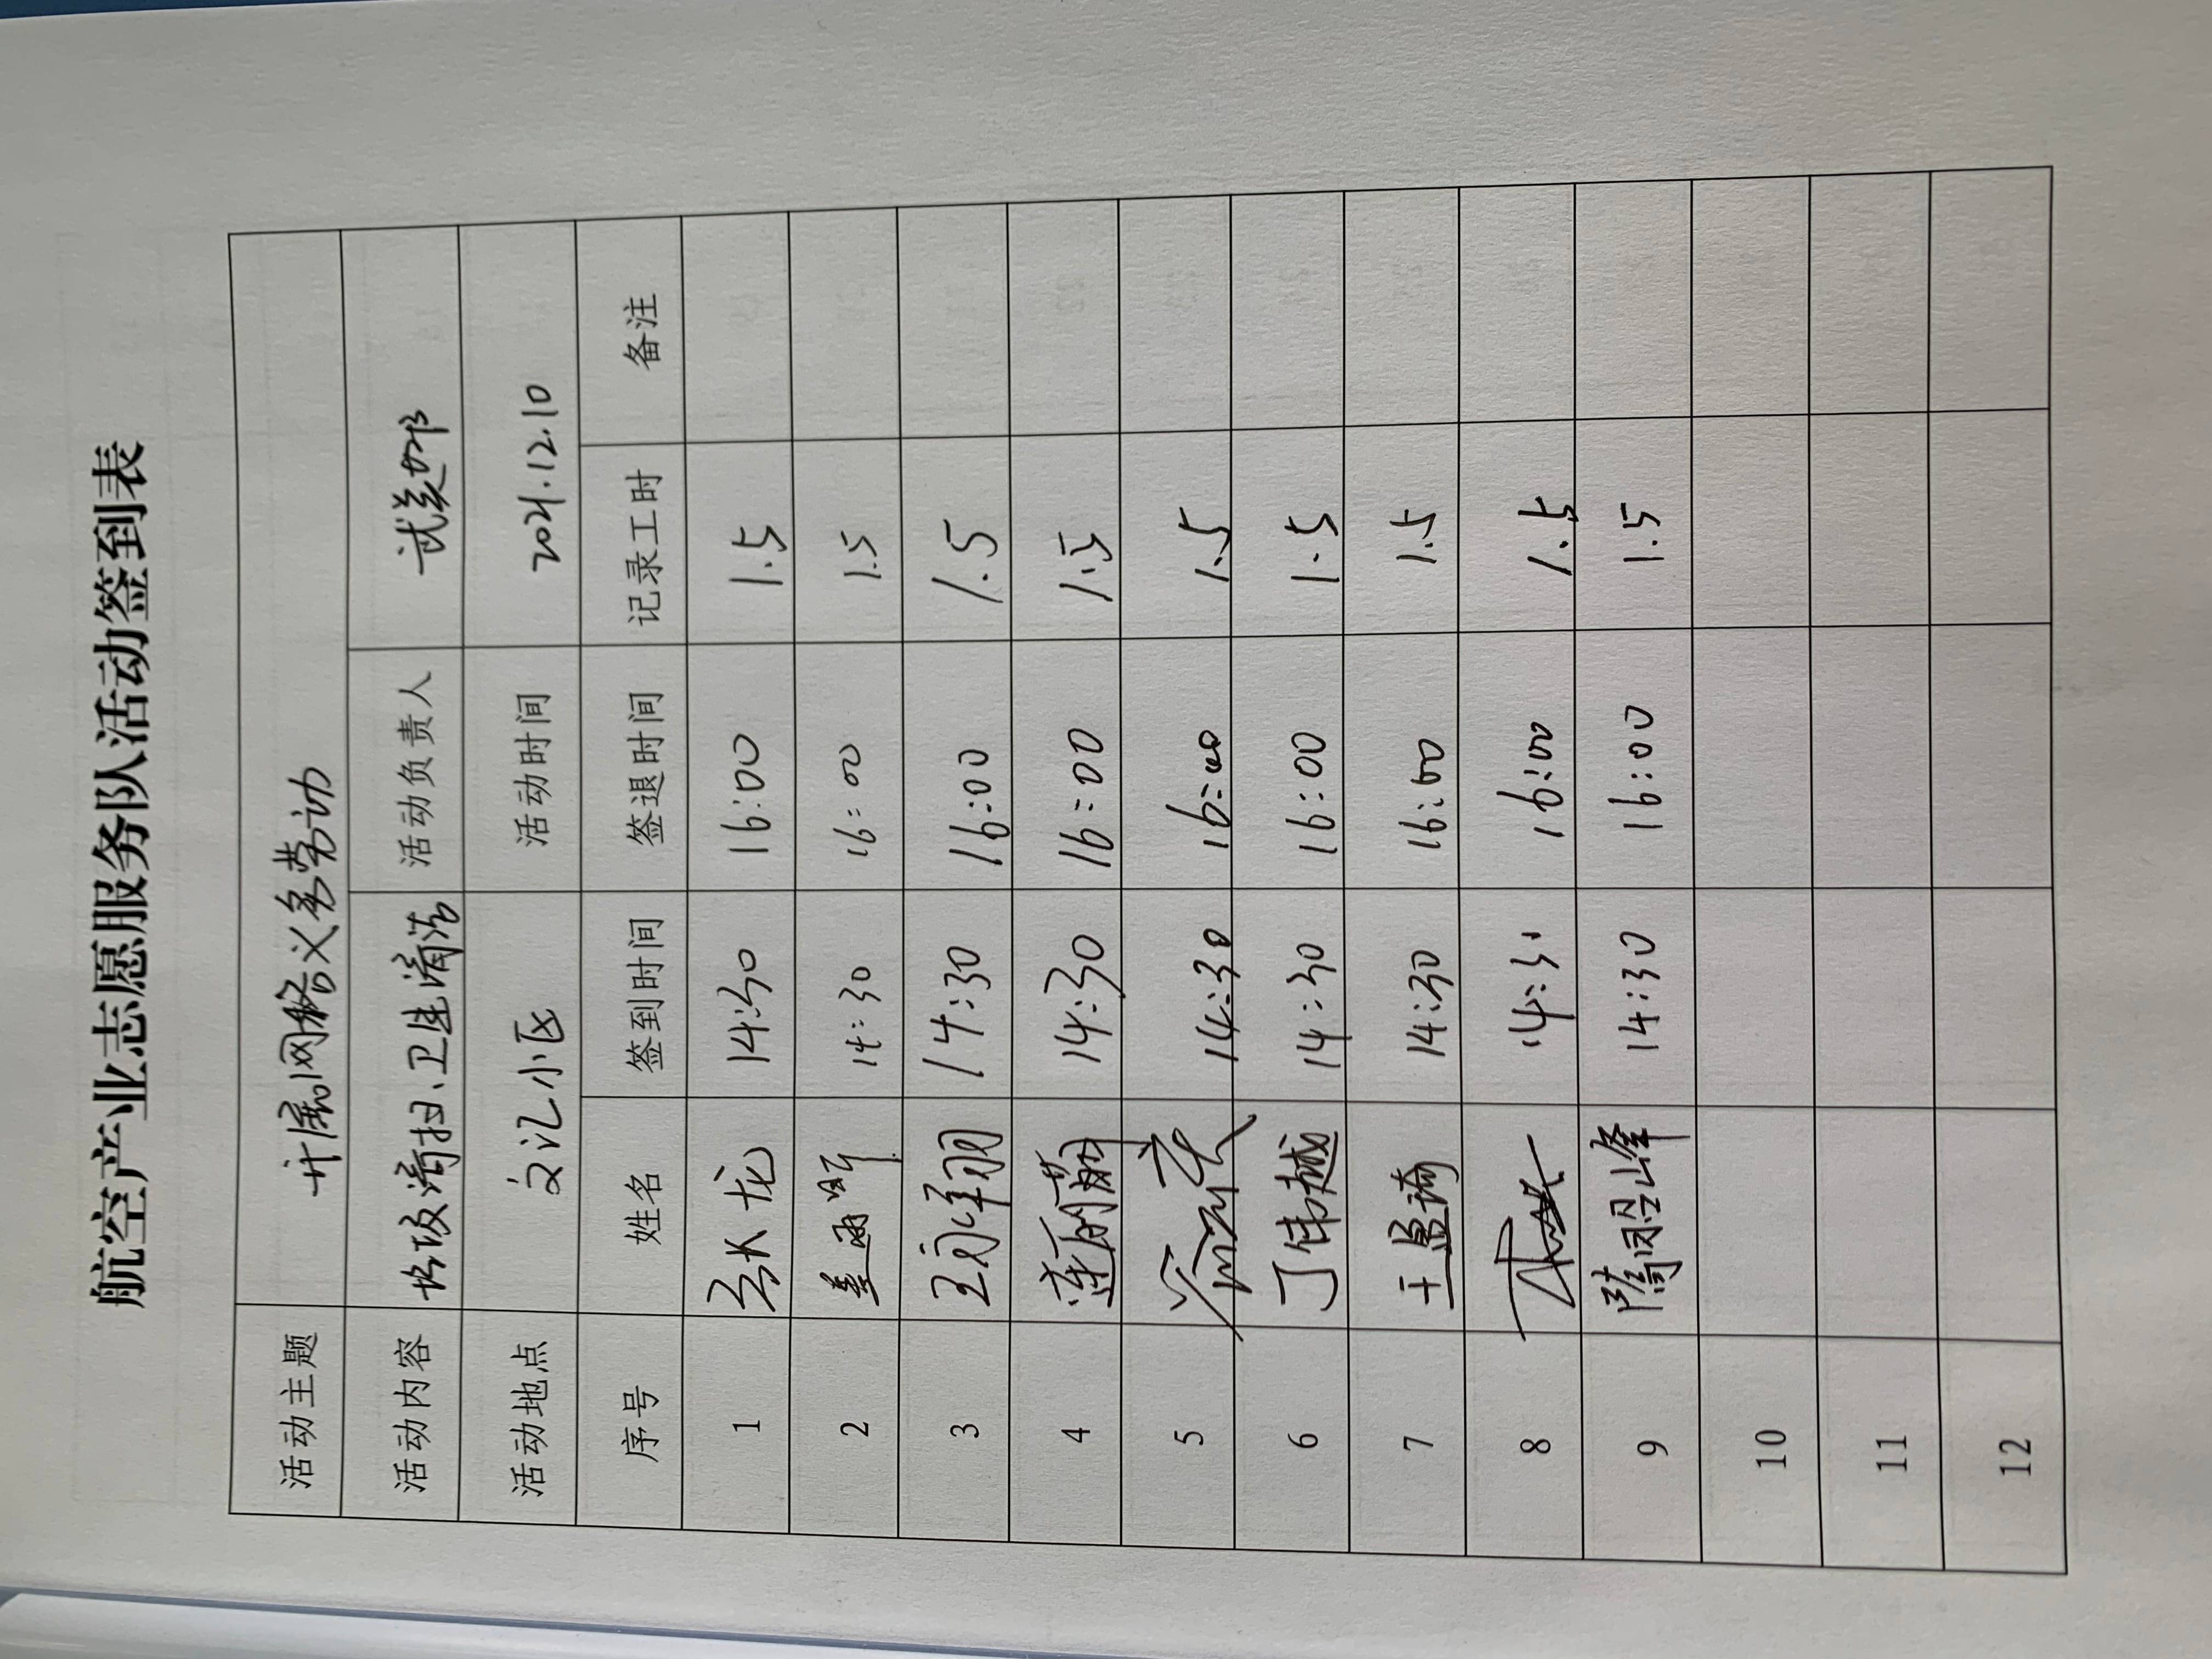 航空产业志愿服务队活动签到表
活动主题 开展网格义务劳动
活动内容 垃圾清扫、卫生清洁 活动负责人
活动地点 文汇小区 活动时间 2021.12.10
序号 姓名 签到时间 签退时间 记录工时 备注
1 14:30 16:00 1.5
2 14:30 16:00 1.5
3 王永翔 14:30 16:00 1.5
4 14:30 16:00 1.5
5 14:30 16:00 1.5
6 丁伟越 14:30 16:00 1.5
7 王盈琦 14:30 16:00 1.5
8 14:30 16:00 1.5
9 蔺昭峰 14:30 16:00 1.5
10
11
12